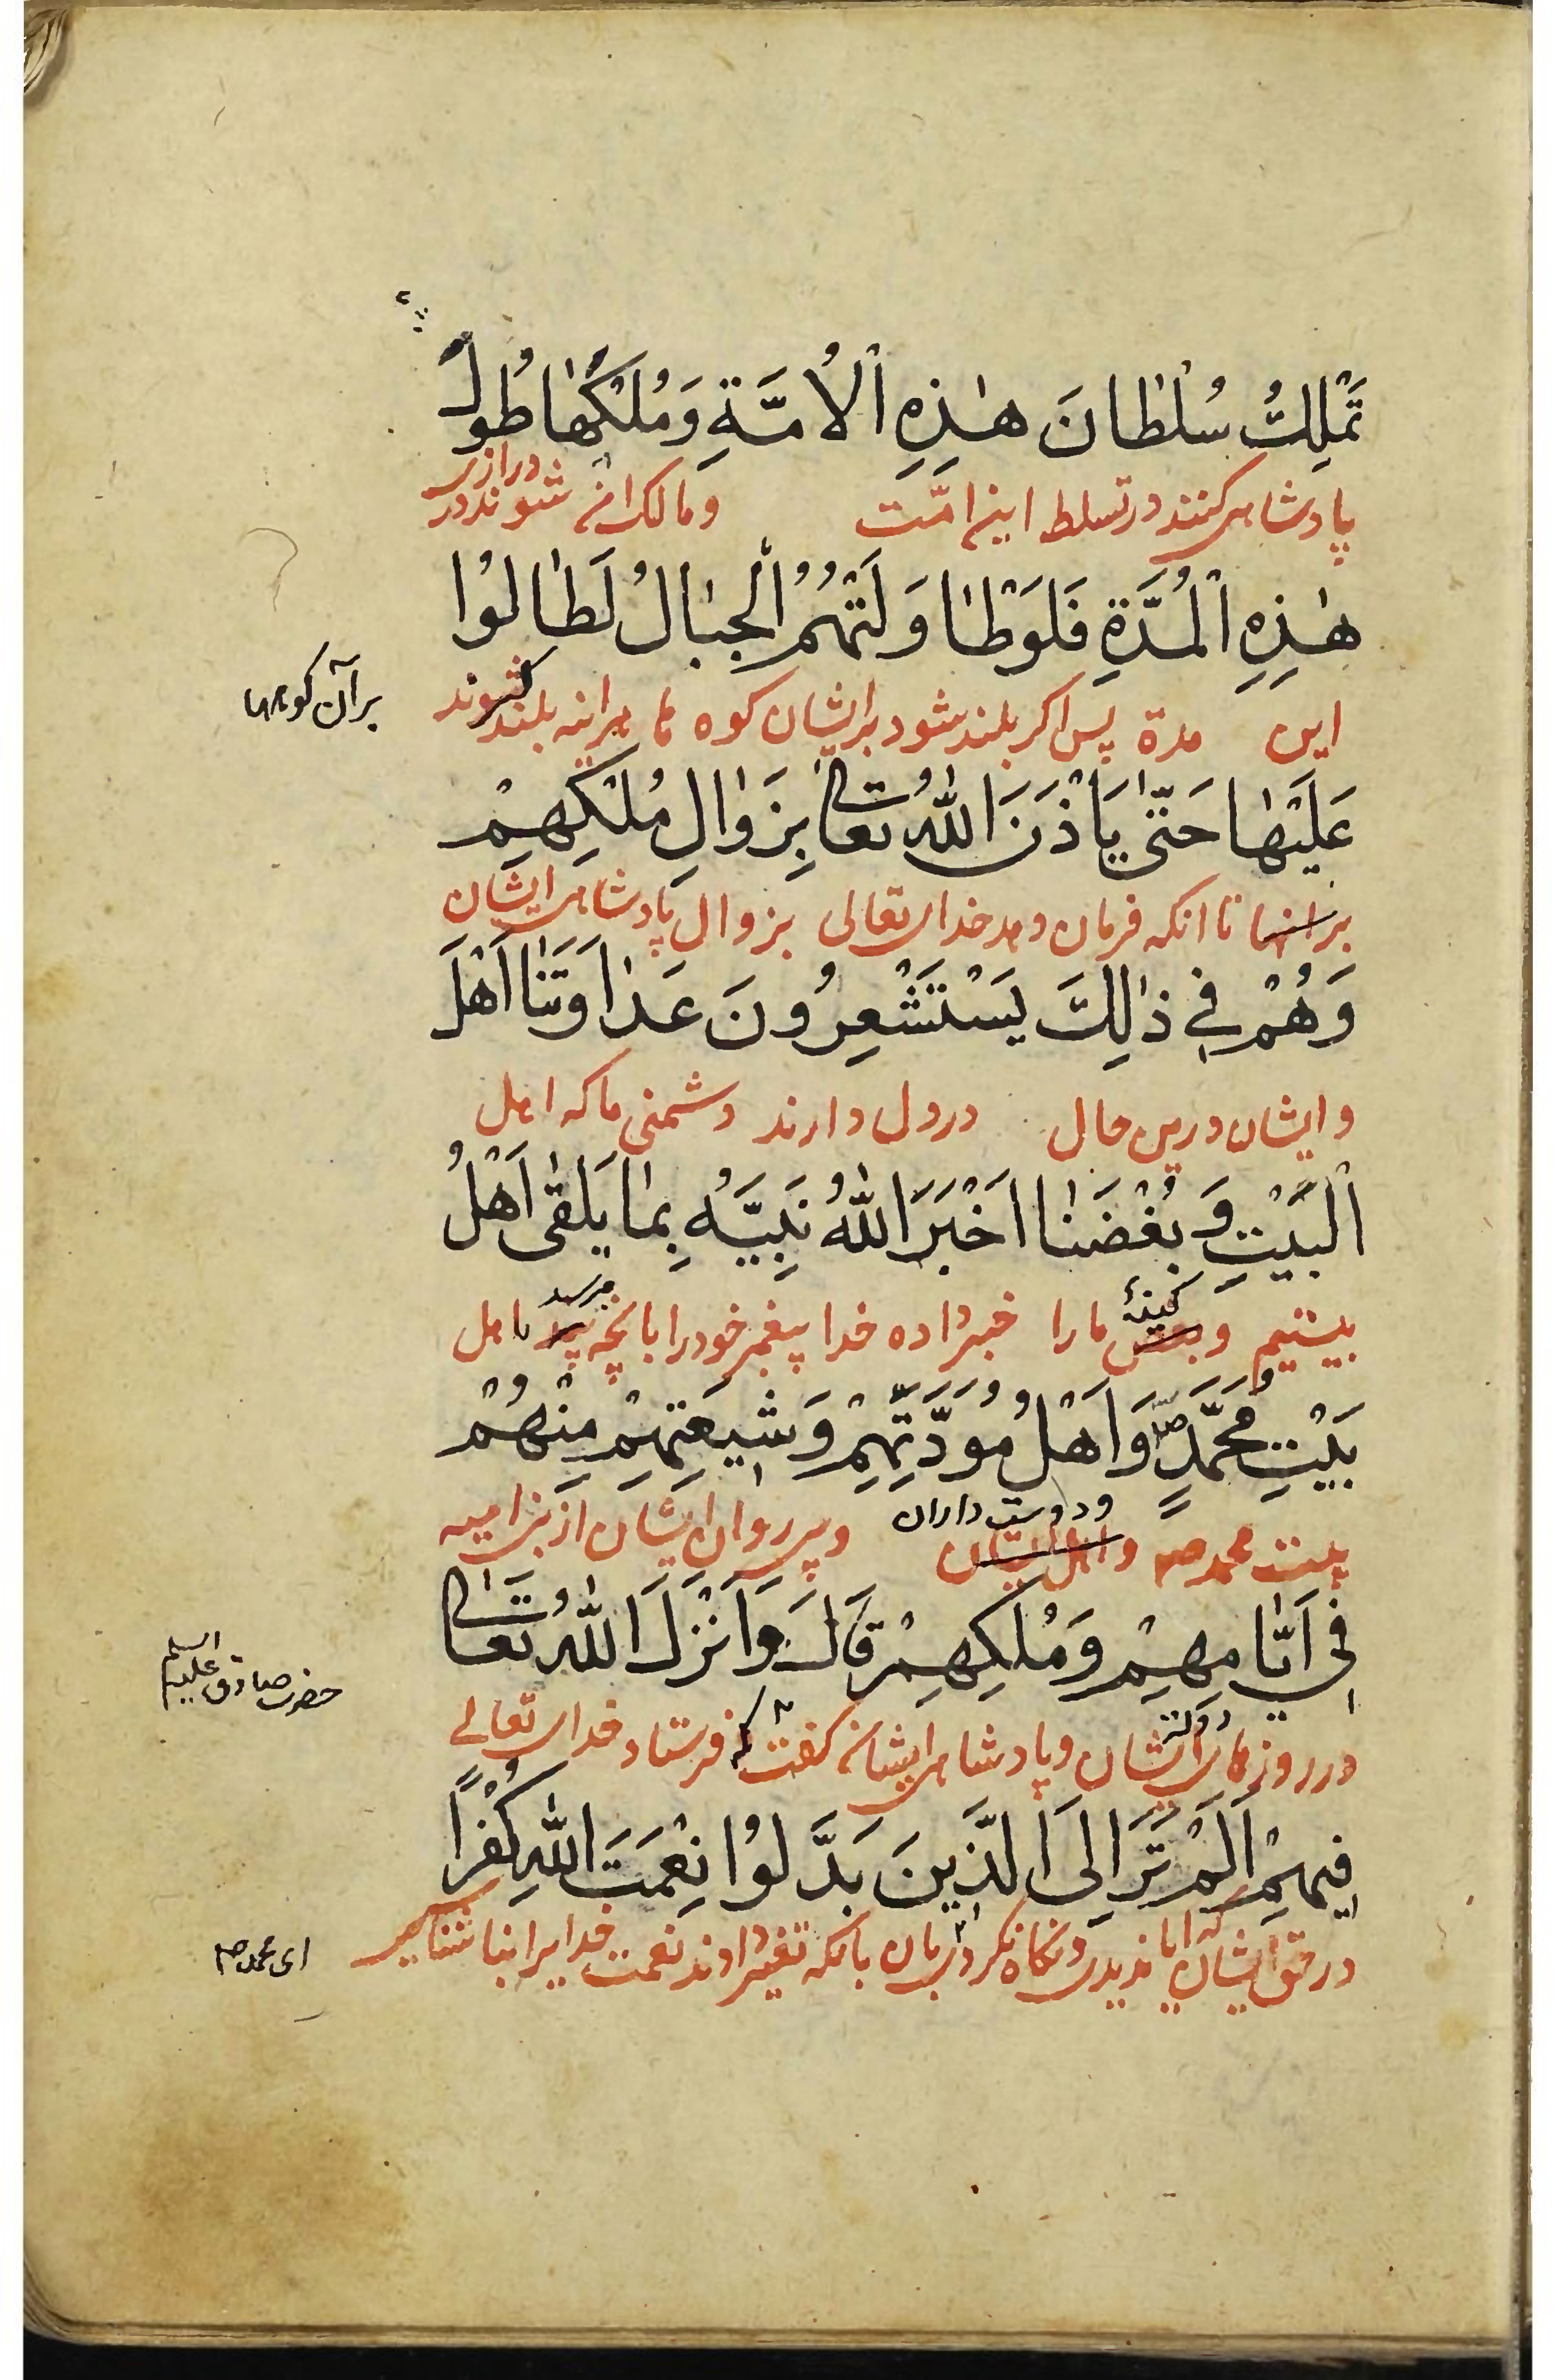 تَمْلِكُ سُلْطَانَ هٰذِهِ الْاُمَّةِ وَمُلْكَهَا طُولَ
پادشاهی کنند در تسلط این امّت و مالک آن شوند در درازی
هٰذِهِ الْمُدَّةِ فَلَوْ طَاوَلَتْهُمُ الْجِبَالُ لَطَالُوا
این مدة پس اکر بلند شود بر ایشان کوه ها هر اینه بلند شوند
بر آن کوهها
عَلَيْهَا حَتّٰى يَأْذَنَ اللهُ تَعَالٰى بِزَوَالِ مُلْكِهِمْ
بر انها تا انکه فرمان دهد خدای تعالی بزوال پادشاهی ایشان
وَهُمْ فِي ذٰلِكَ يَسْتَشْعِرُونَ عَدَاوَتَنَا اَهْلَ
و ایشان درین حال در دل دارند دشمنی ما که اهل
الْبَيْتِ وَ بُغْضَنَا اَخْبَرَ اللهُ نَبِيَّهُ بِمَا يَلْقٰى اَهْلُ
بیتیم و کینهٔ ما را خبر داده خدا پیغمبر خود را بانچه میرسد باهل
بَيْتِ مُحَمَّدٍ ص وَاَهْلُ مَوَدَّتِهِمْ وَ شِيعَتِهِمْ مِنْهُمْ
بیت محمد ص و دوست داران و پیروان ایشان از بنی امیه
فِي اَيَّامِهِمْ وَمُلْكِهِمْ قَالَ وَاَنْزَلَ اللهُ تَعَالٰى
در روزهای دولت ایشان و پادشاهی ایشان کفت که فرستاد خدای تعالی
حضرت صادق علیه السلم
فِيهِمْ اَلَمْ تَرَ اِلَى الَّذِينَ بَدَّلُوا نِعْمَتَ اللهِ كُفْرًا
در حق ایشان که ایا ندیدی و نکاه نکردی بانکه تغییر دادند نعمت خدایرا
ای محمد ص